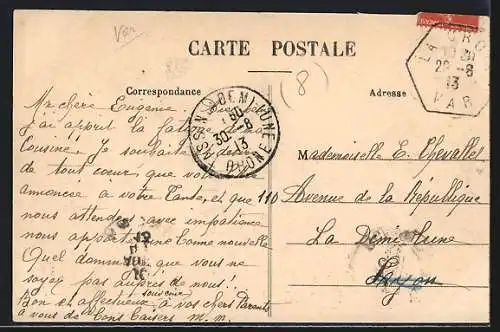 Var
CARTE POSTALE
(8)
Correspondance
Adresse
LA CRO
28 -8
13
VAR
DEMI-LUNE
30 -8
13
RHONE
Ma chère Eugénie.
j'ai appris la
Cousine. Je souhaite
de tout coeur, que votre
annoncée à votre Tante, et que
nous attendons avec impatience
nous apporte une bonne nouvelle
Quel dommage que vous ne
soyez pas auprès de nous!
souvenir
Bon et affectueux à vos chers Parents
à vous de bons baisers M. M.
Mademoiselle E. Chevallet
110 Avenue de la République
La Demi-Lune
Lyon